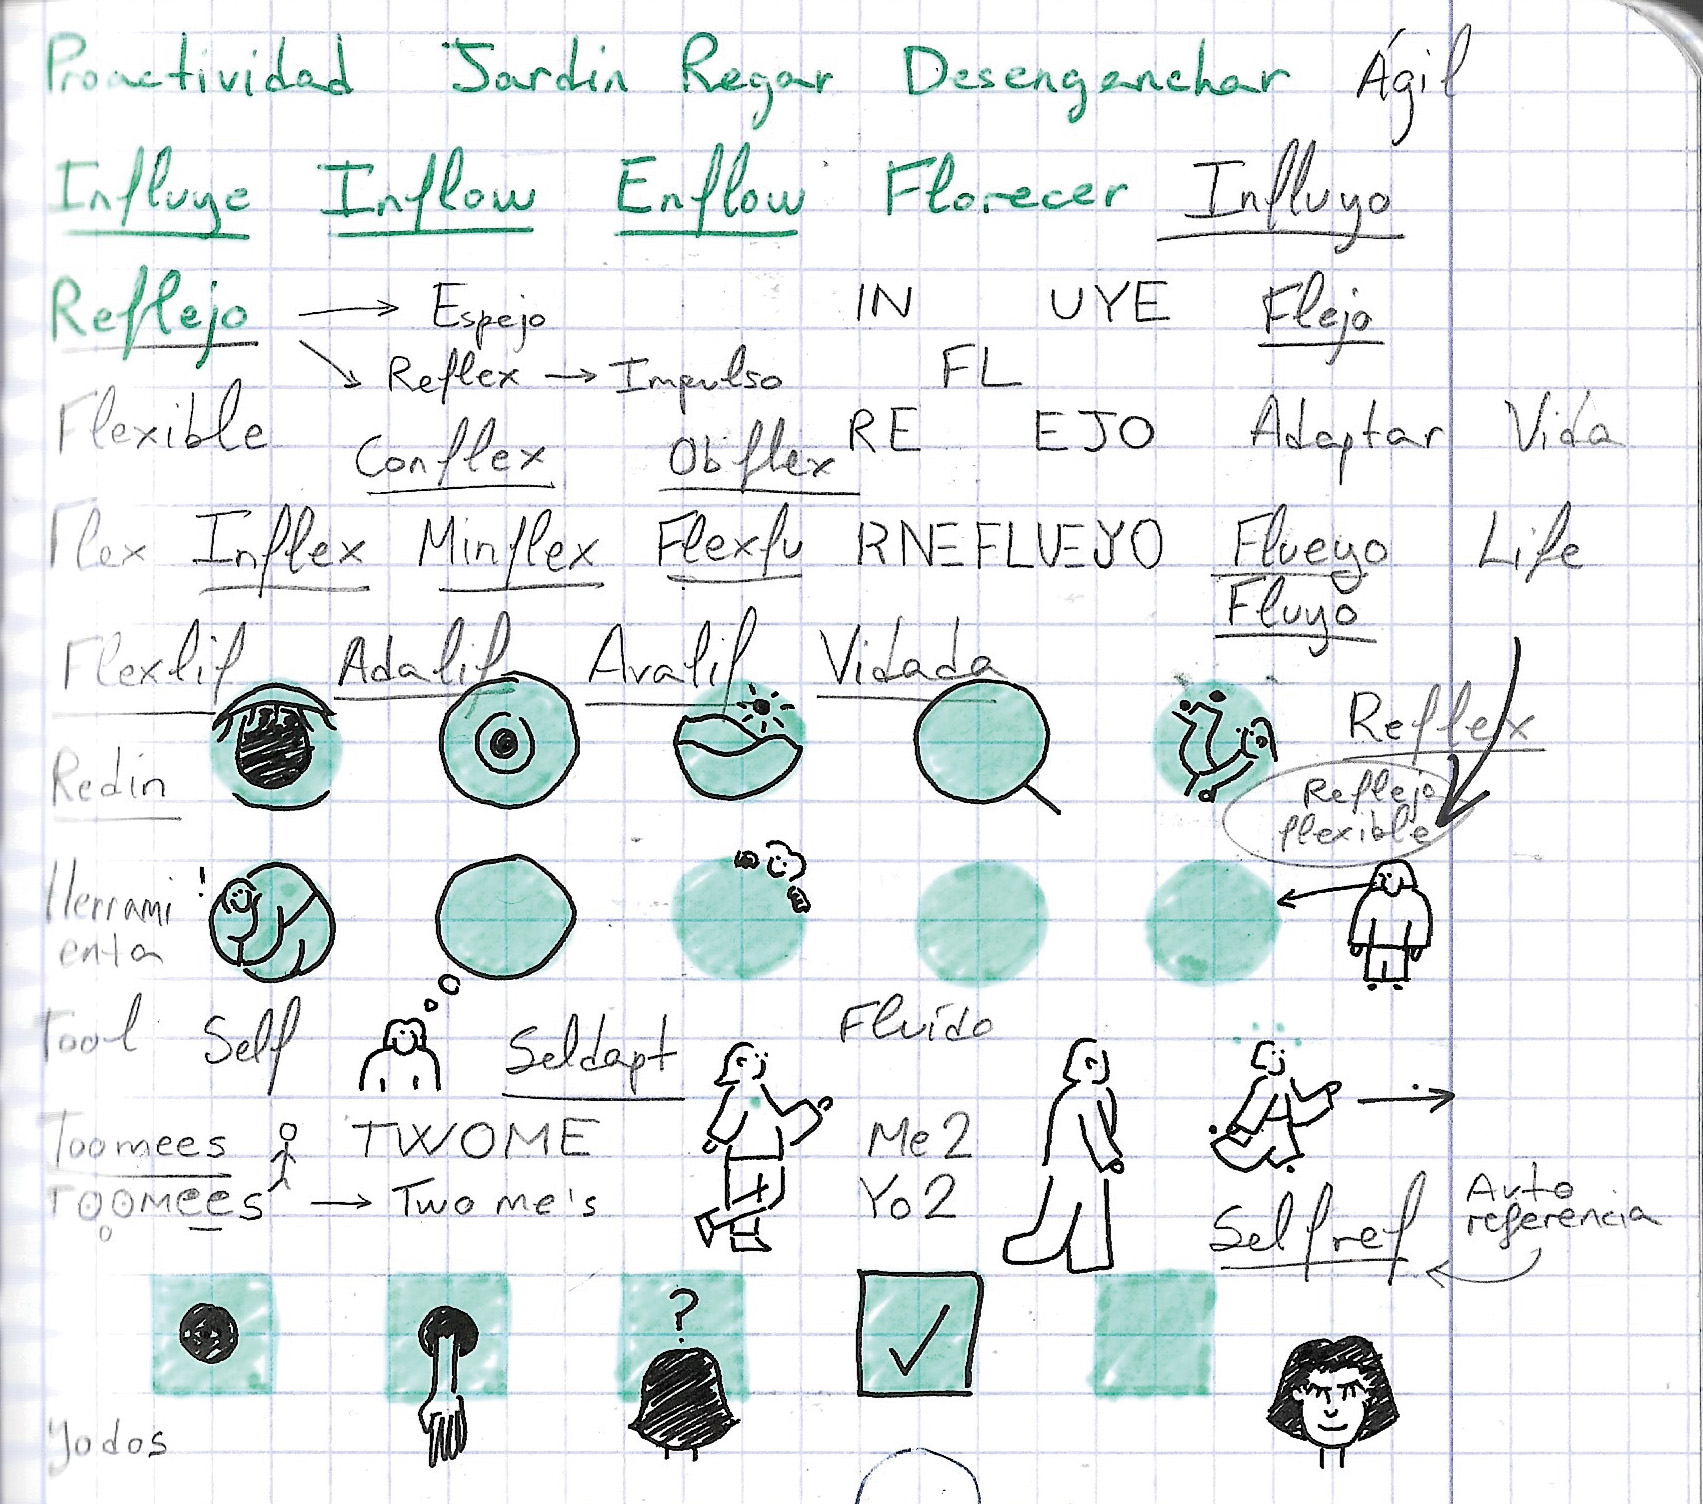 Proactividad Jardín Regar Desenganchar Ágil
Influye Inflow Enflow Florecer Influyo
Reflejo → Espejo IN UYE Flejo
→ Reflex → Impulso FL
Flexible Conflex Obflex RE EJO Adaptar Vida
Flex Inflex Minflex Flexfu RNEFLUEJYO Flueyo Life
Fluyo
Flexlif Adalif Avalif Vidada
Reflex
Redin
Reflejo
flexible
Herrami
enta
!
Tool Self Seldapt Fluído
Toomees TWOME Me2
TOOMEES → Two me's Yo2
Selfref
Auto
referencia
?
Yodos